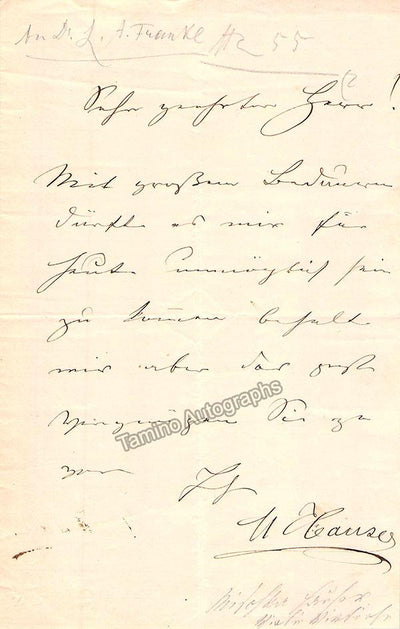 An Dr. L. A. Frankl
55
Sehr geehrter Herr!
Mit großem Bedauern
dürfte es mir für
heute unmöglich sein
zu kommen behalte
mir aber das
Vergnügen Sie zu
Ihr
M Hauser
Tamino Autographs
Mischka Hauser
Violin Virtuose